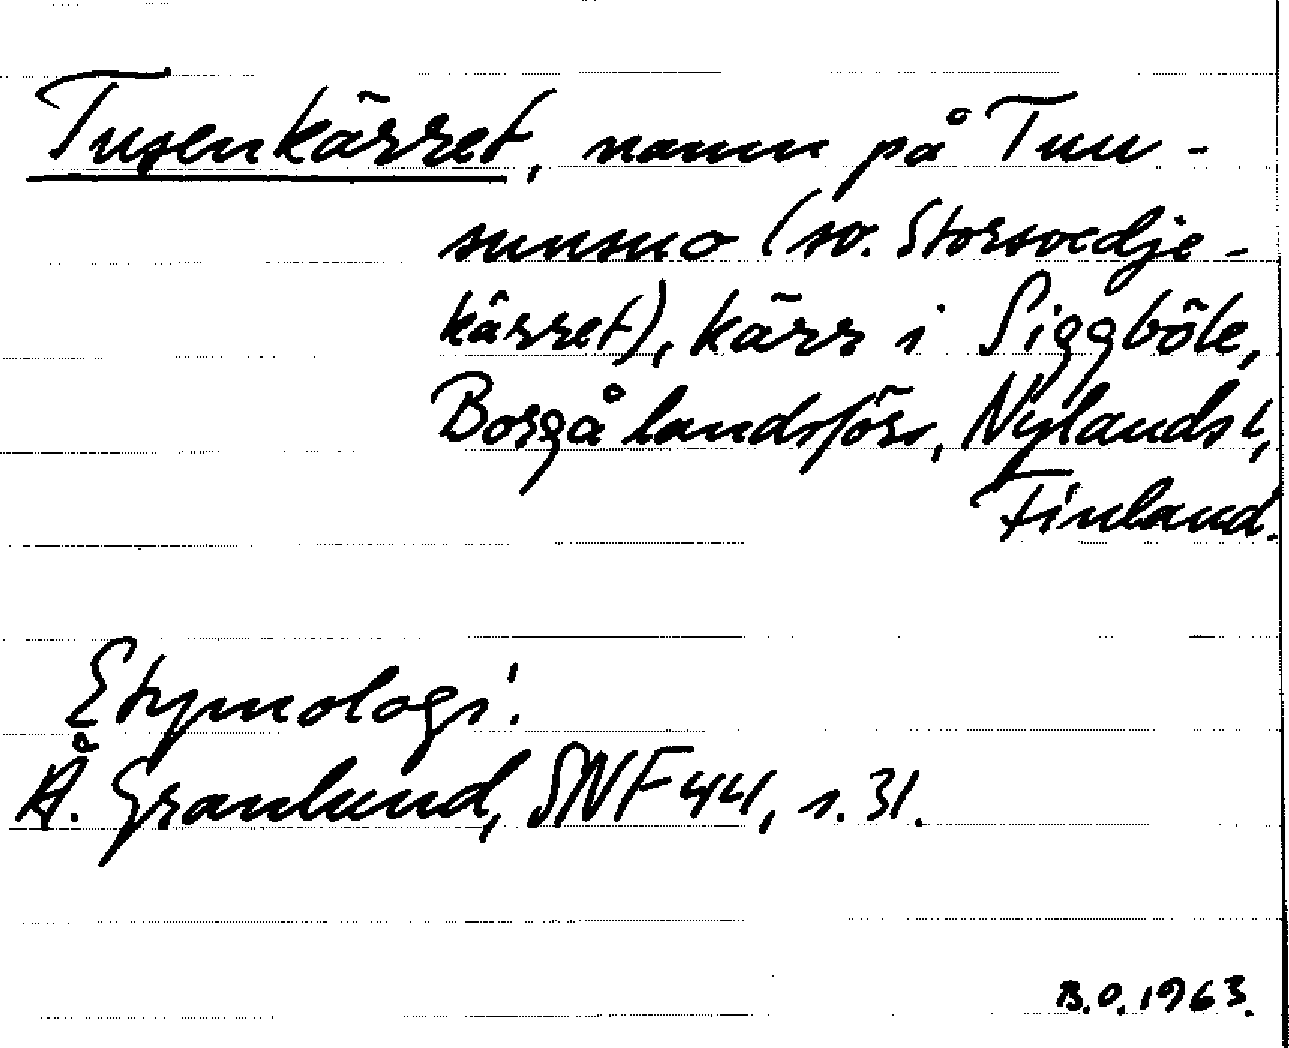 Tusenkärret, namn på Tuu-
sunsuo (sv. Storsvedje-
kärret), kärr i Siggböle,
Borgå landsförs, Nylands l,
Finland.
Etymologi:
Å. Granlund, SNF 44, s. 31.
B.O. 1963.